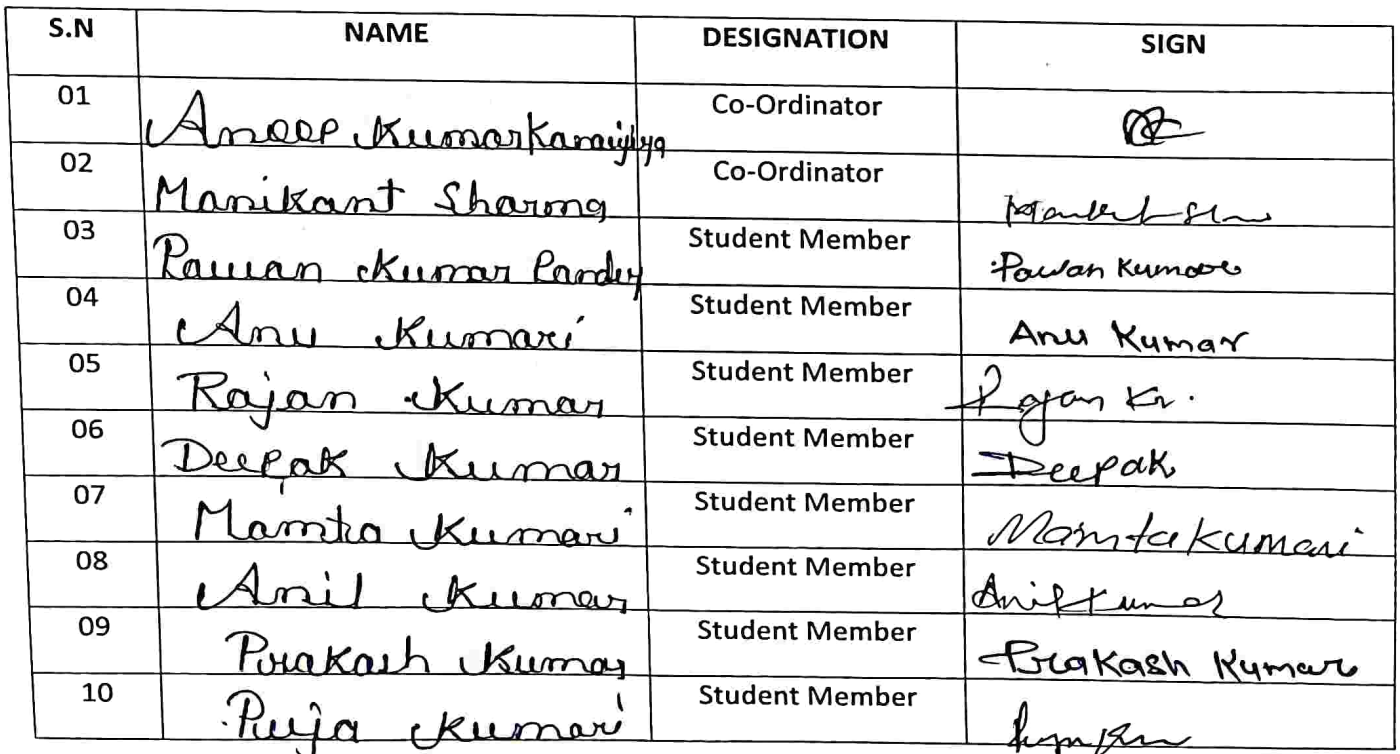 S.N NAME DESIGNATION SIGN
01 Anoop Kumar Kanaujiya Co-Ordinator
02 Manikant Sharma Co-Ordinator
03 Pawan Kumar Pandey Student Member Pawan Kumar
04 Anu Kumari Student Member Anu Kumar
05 Rajan Kumar Student Member Rajan Kr.
06 Deepak Kumar Student Member Deepak
07 Mamta Kumari Student Member Mamta Kumari
08 Anil Kumar Student Member Anil Kumar
09 Prakash Kumar Student Member Prakash Kumar
10 Puja Kumari Student Member